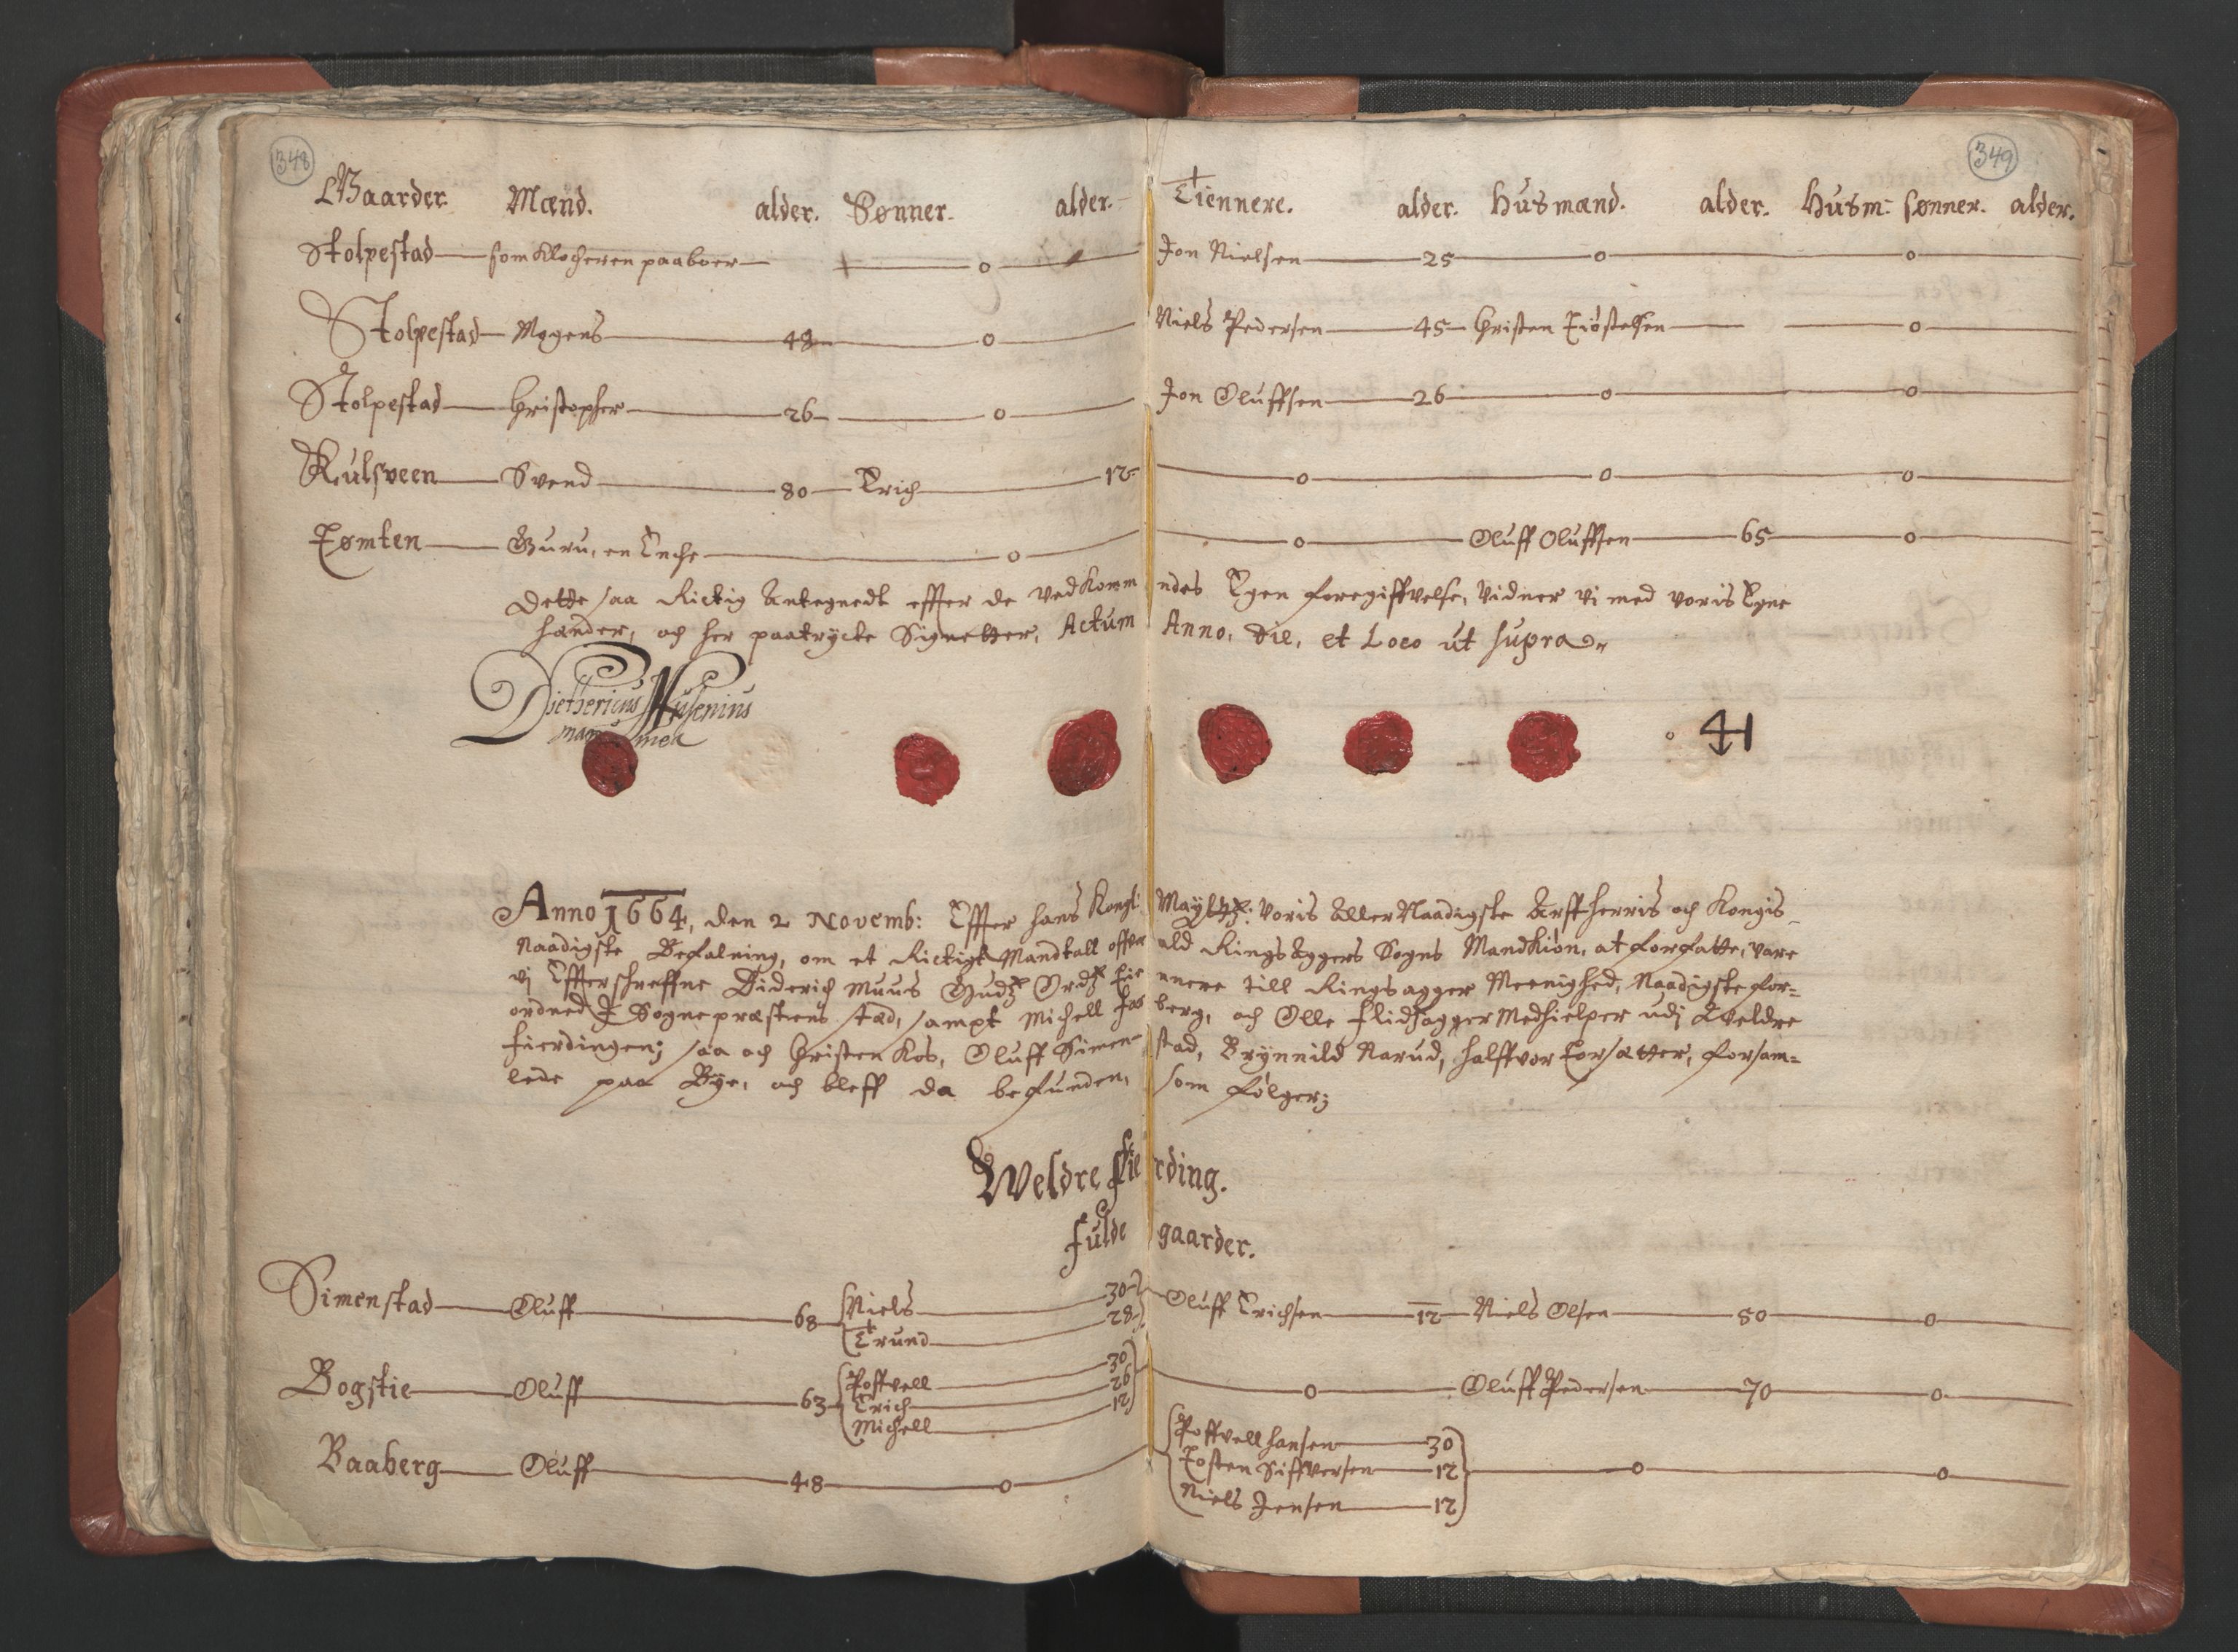 348
349
Gaarder. Mænd. alder. Sønner. alder. Tiennere. alder. Husmænd. alder. Husm: sønner. alder.
Stolpestad som Klocheren paaboer o Jon Nielsen 25 o o
Stolpestad Mogens 48 o Niels Pedersen 45 Christen Tiøstelsen o
Stolpestad Christopher 26 o Jon Oluffsen 26 o o
Kulsveen Svend 80 Erich 12 o o o
Tømten Guru, en Enche o o Oluff Oluffsen 65 o
Dette saa Rictig Antegnedt effter de vedkommendes Egen foregiffvelse, vidner vi med voris Egne
hænder, och her paatrÿckte Signetter, Actum Anno, Die, et Loco ut supra
Diethericus Musenius
manu mea
Anno 1664, den 2 Novemb: Effter hans Kongl: Maÿtz: voris AllerNaadigste Arffherris och Kongis
Naadigste Befalning, om et Rictigt Mandtall offver ald Ringsaggers Sogns Mandkiön, at forfatte, vare
vj Effterschreffne Diderich Muus Gudz Ordz Tiennere till Ringsagger Meenighed, Naadigste for=
ordned J Sognepræstens stæd, sampt Michell Jasberg, och Olle flidsagger Medhielper udj Weldre
fierdingen; saa och Christen Kos, Oluff Simenstad, Brÿnnild Narud, halffvor Torsætter, forsam=
lede paa Bÿe, och bleff da befunden, som følger;
Weldre Fierding.
fulde gaarder.
Simenstad Oluff 68 Niels 30 Oluff Erichsen 12 Niels Olsen 50 o
Trund 28
Bogstie Oluff 63 Poffvell 30 o Oluff Pedersen 70 o
Erich 26
Michell 12
Baaberg Oluff 48 o Poffvell hansen 30 o o
Tosten Siffversen 12
Niels Jensen 12